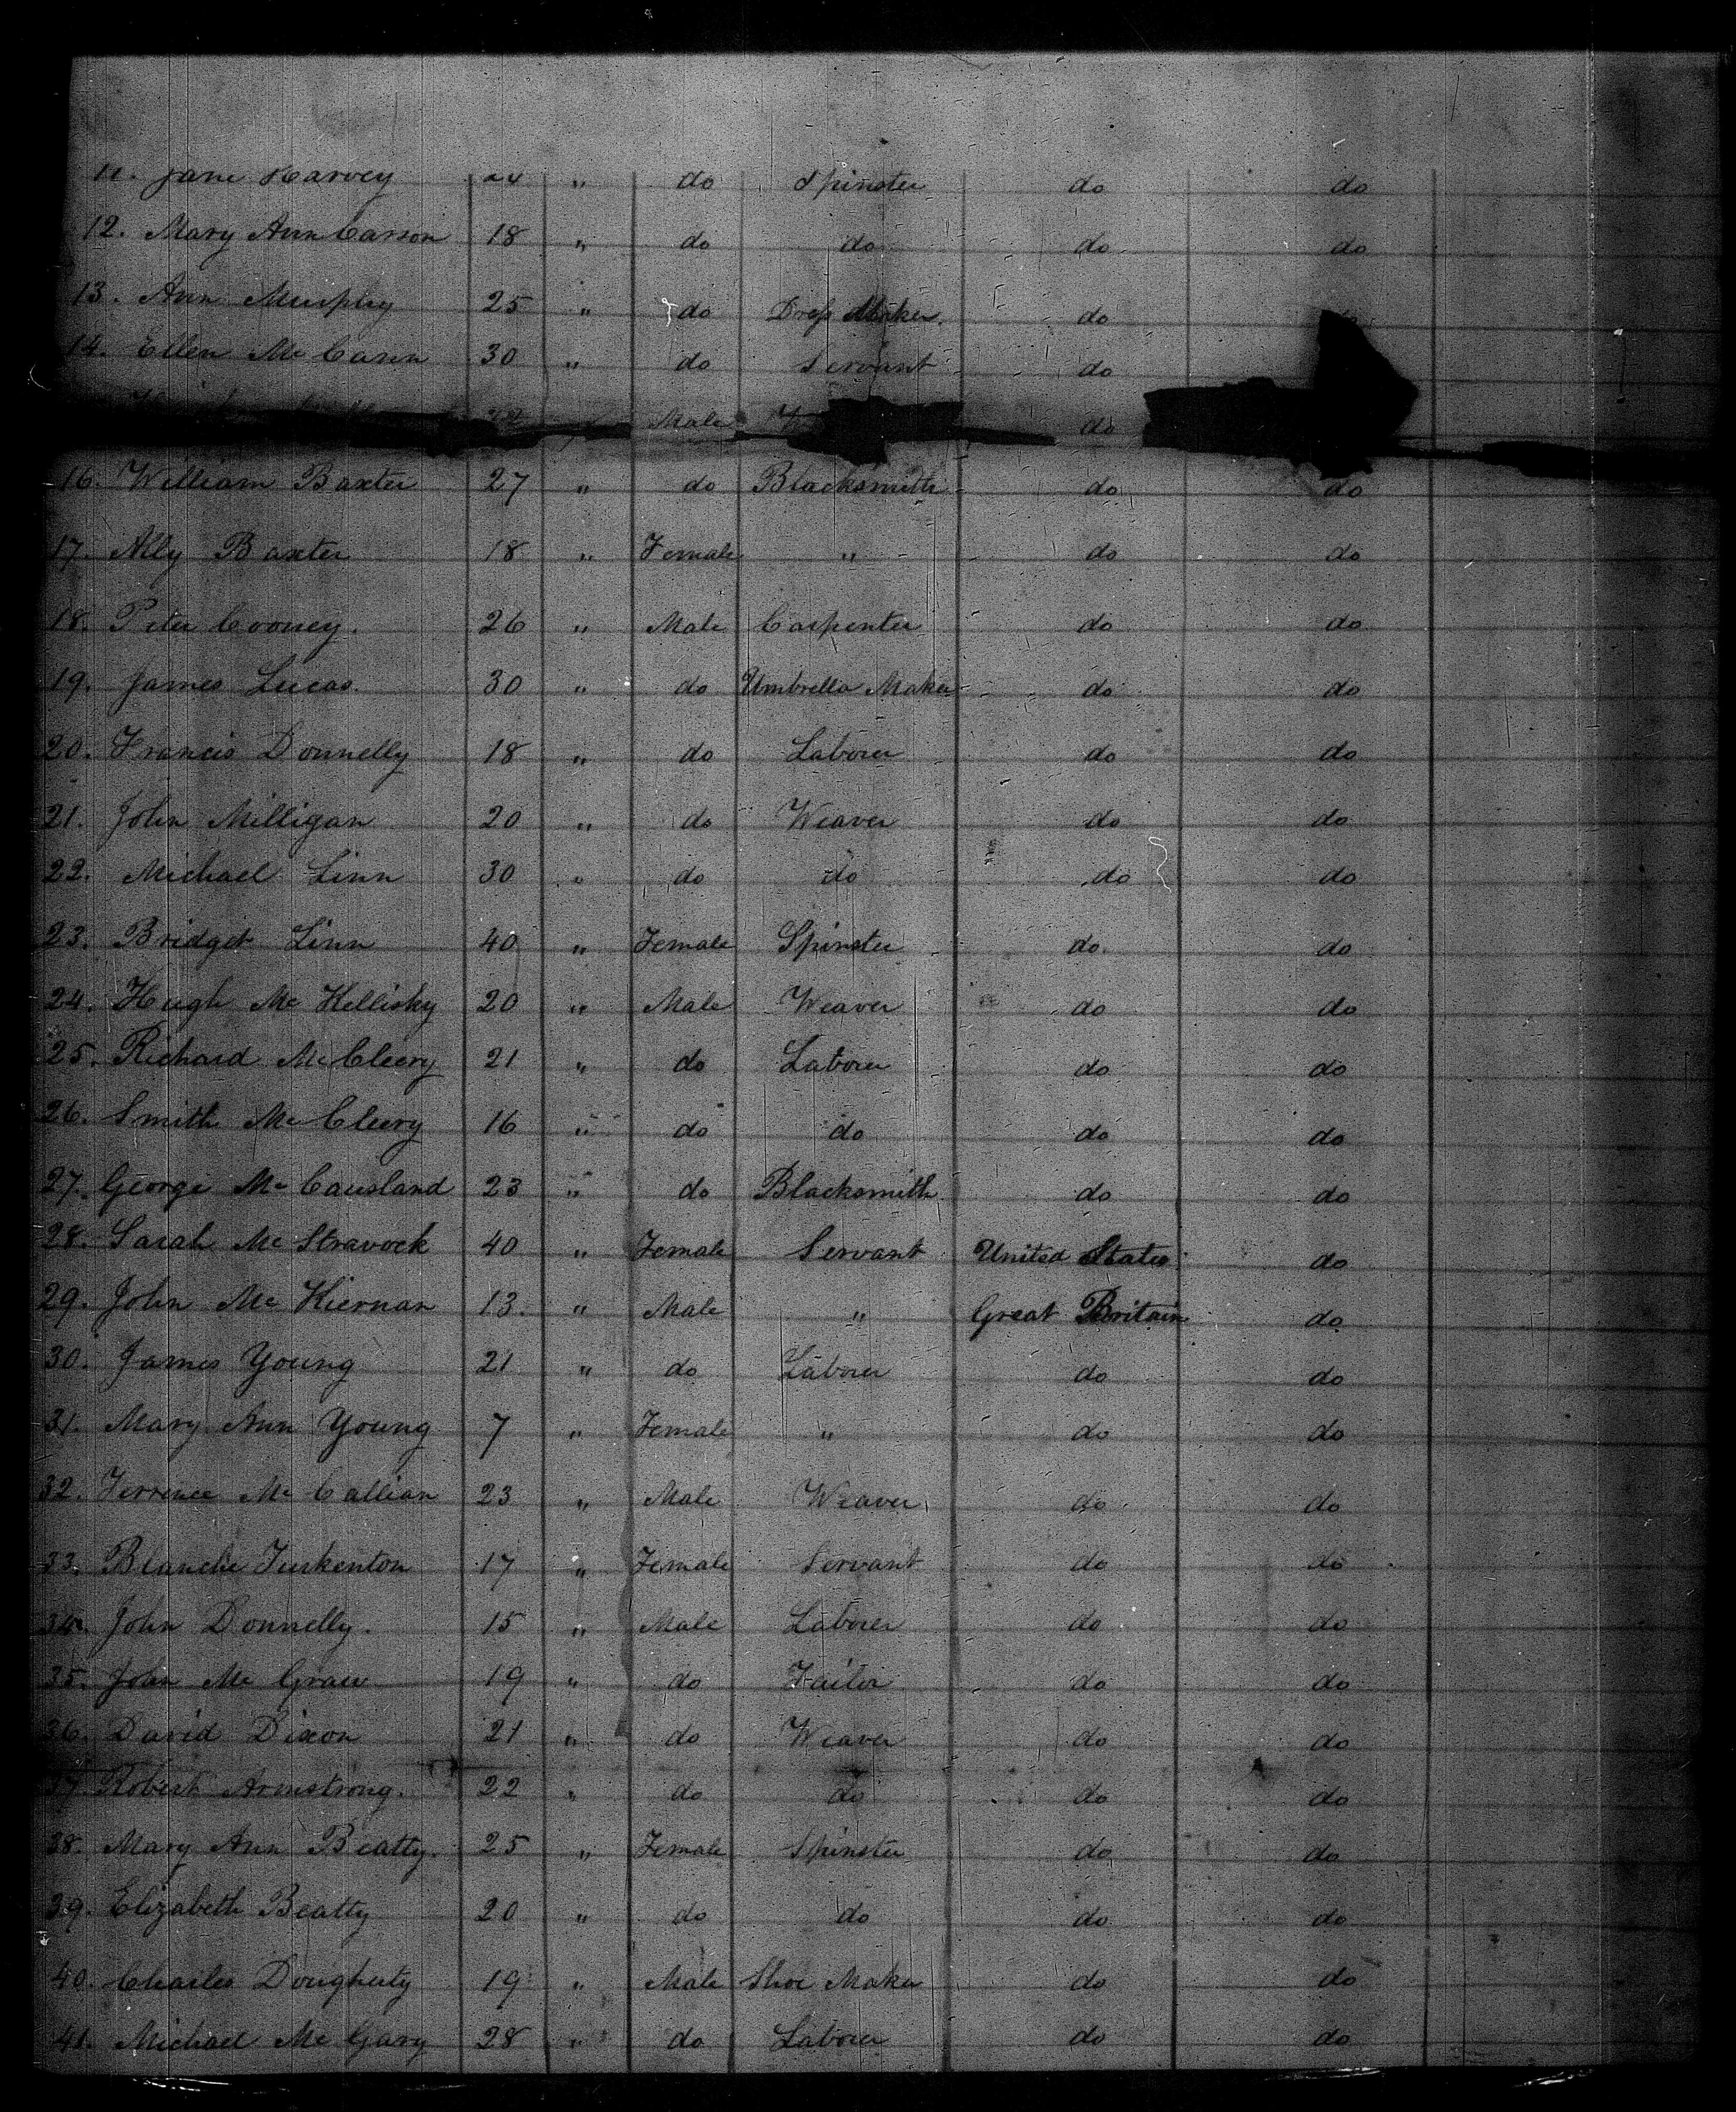 11. Jane Harvey " do Spinster do do
12. Mary Ann Carson 18 " do do do do
13. Ann Murphy 25 " do Dress Maker. do
14. Ellen Mc Cann 30 " do Servant do
Male do
16. William Baxter 27 " do Blacksmith do do
17. Ally Baxter 18 " Female " do do
18. Peter Cooney. 26 " Male Carpenter do do
19. James Lucas. 30 " do Umbrella Maker do do
20. Francis Donnelly 18 " do Laborer do do
21. John Milligan 20 " do Weaver do do
22. Michael Linn 30 " do do do do
23. Bridget Linn 40 " Female Spinster do. do
24. Hugh Mc 20 " Male Weaver do do
25. Richard Mc Cleery 21 " do Laborer do do
26. Smith Mc Cleery 16 " do do do do
27. George Mc Causland 23 " do Blacksmith do do
28. Sarah Mc Stravock 40 " Female Servant United States do
29. John Mc Kiernan 13. " Male " Great Britain do
30. James Young 21 " do Laborer do do
31. Mary Ann Young 7 " Female " do do
32. Terrence Mc Callian 23 " Male Weaver do do
33. Blanche Turkenton 17 " Female Servant do do
34. John Donnelly. 15 " Male Laborer do do
35. John Mc Graw 19 " do Tailor do do
36. David Dixon 21 " do Weaver do do
37. Robert Armstrong. 22 " do do do do
38. Mary Ann Beatty. 25 " Female Spinster do do
39. Elizabeth Beatty 20 " do do do do
40. Charles Dougherty 19 " Male Shoe Maker do do
41. Michael Mc Gary 28 " do Laborer do do